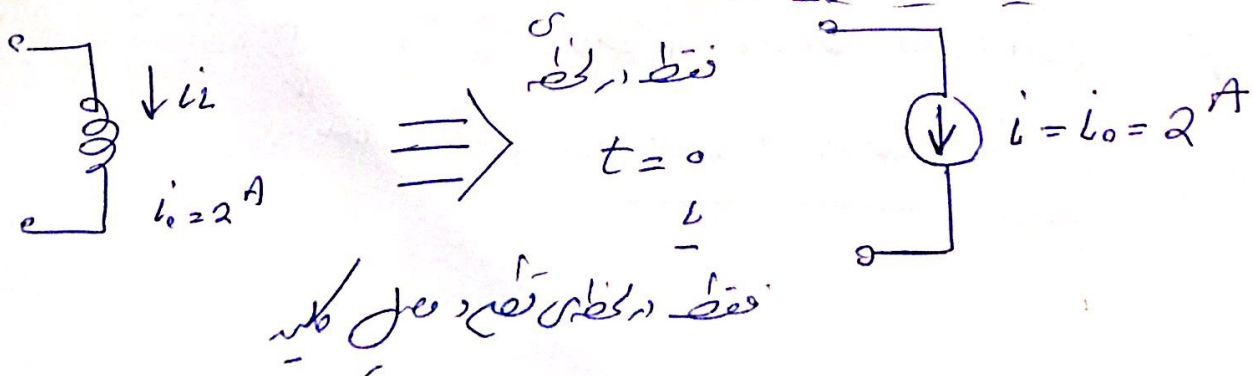 ↓ i_L
i₀ = 2^A
فقط در لحظه‌ی
t = 0
یا
فقط در لحظه‌ی قطع و وصل کلید
i = i₀ = 2^A